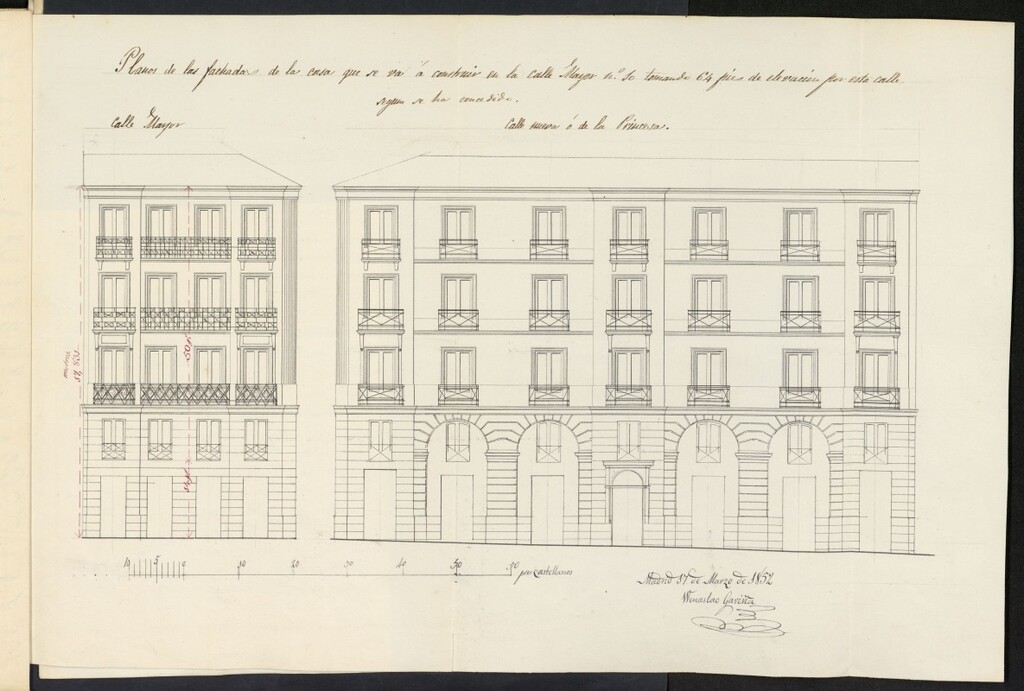 Planos de las fachadas de la casa que se va á construir en la calle Mayor nº tomando 64 pies de elevacion por esta calle
segun se ha concedido.
Calle Mayor
Calle nueva ó de la Princesa.
50 p.
10 5 0 10 20 30 40 50 pies castellanos
Madrid 17 de Marzo de 1852
Wenceslao Gaviña